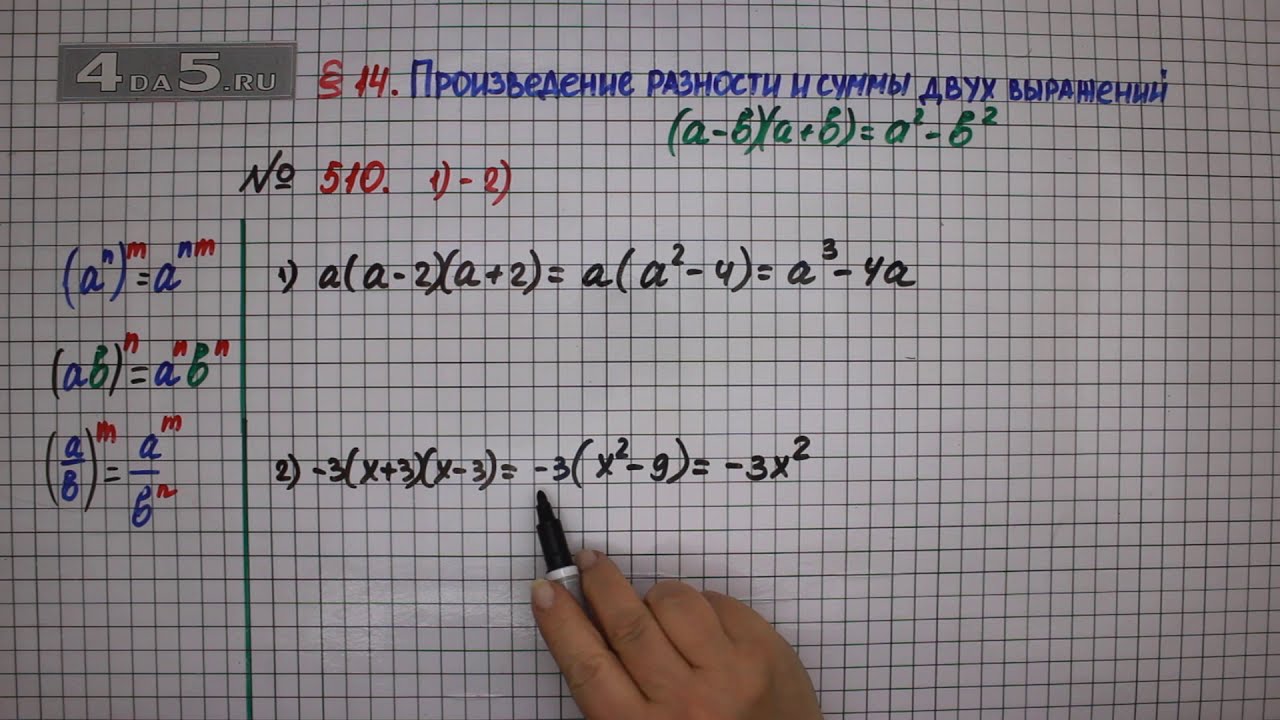 4DA5.RU
§ 14. Произведение разности и суммы двух выражений
(a-в)(a+в)=a²-в²
№ 510. 1)-2)
(aⁿ)ᵐ=aⁿᵐ
(aв)ⁿ=aⁿвⁿ
(a/в)ᵐ=aᵐ/вⁿ
1) a(a-2)(a+2)=a(a²-4)=a³-4a
2) -3(x+3)(x-3)=-3(x²-9)=-3x²